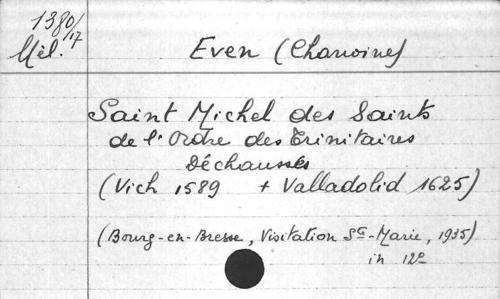 1380/17
Mél.
Even (Chanoine)
Saint Michel des Saints
de l'Ordre des Trinitaires
Déchaussés
(Vich 1589 + Valladolid 1625)
(Bourg-en-Bresse, Visitation Ste-Marie, 1935)
in 12º